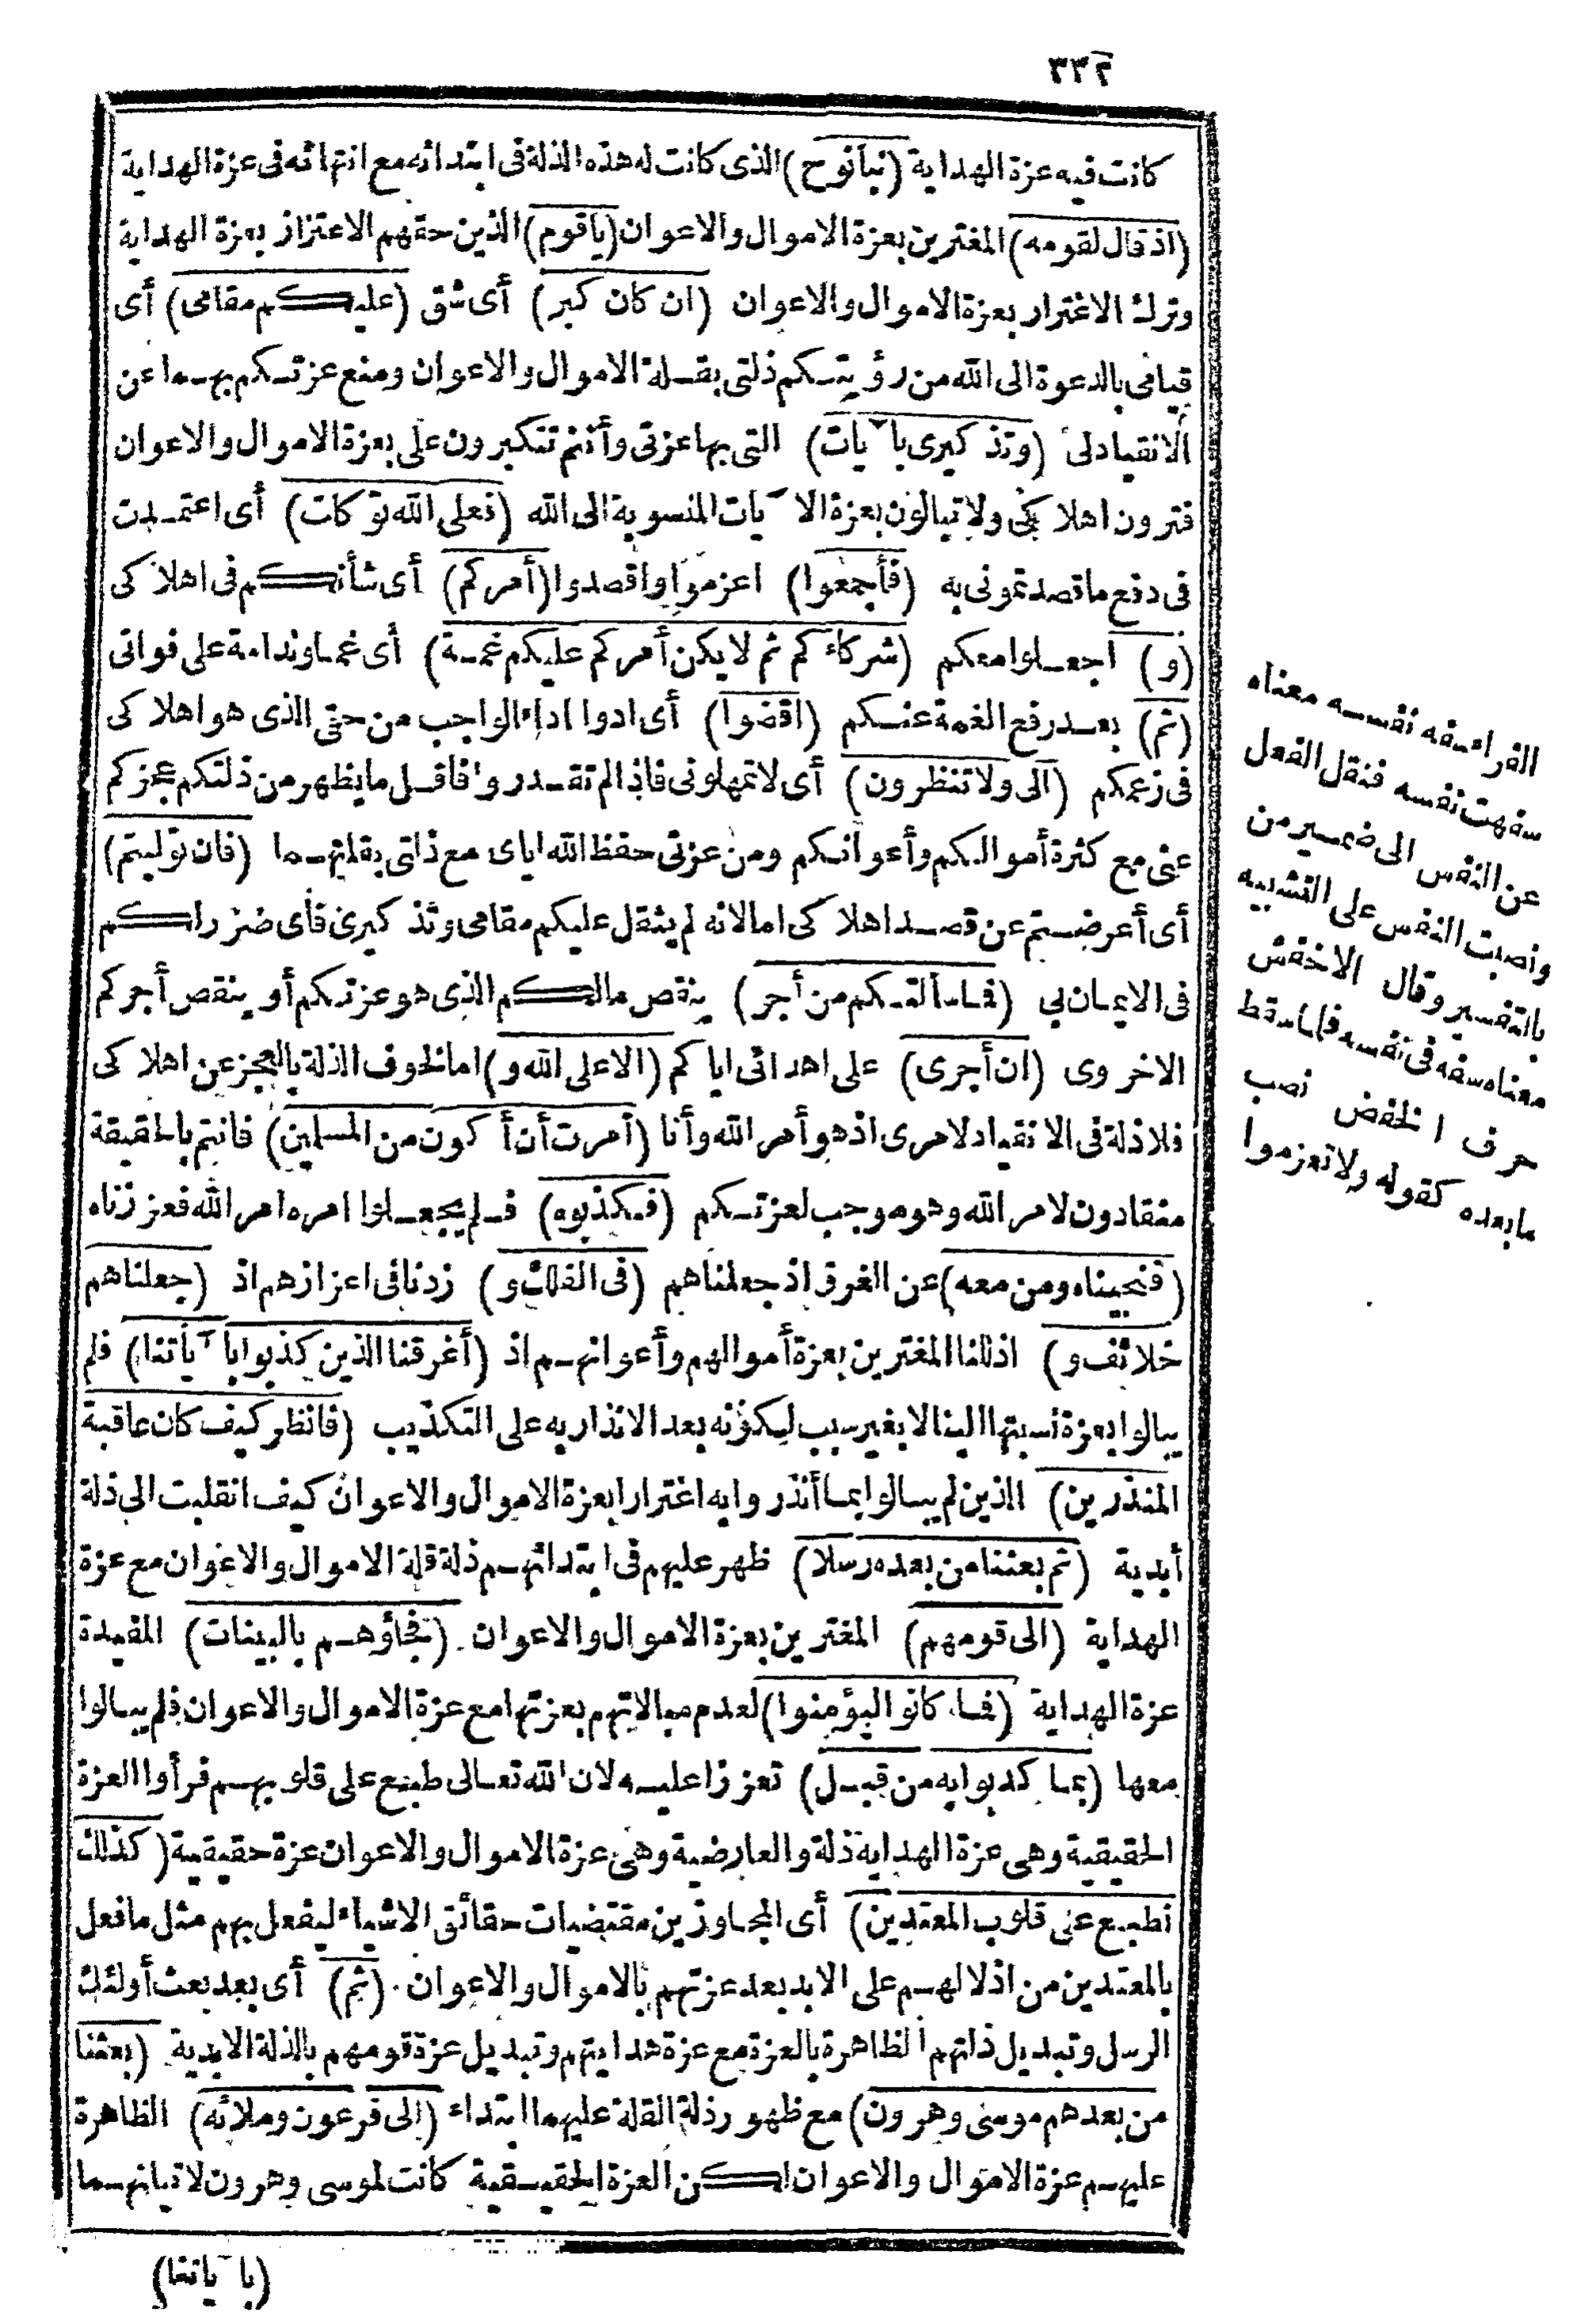 ٣٣٢
كانت فيه عزة الهداية (نبأ نوح) الذى كانت له هذه الذلة فى ابتدائه مع انتهائه فى عزة الهداية
(اذ قال لقومه) المغترين بعزة الاموال والاعوان (ياقوم) الذين حقهم الاعتزاز بعزة الهداية
وترك الاغترار بعزة الاموال والاعوان (ان كان كبر) أى شق (عليكم مقامى) أى
قيامى بالدعوة الى الله من رؤيتكم ذلتى بقلة الاموال والاعوان ومنع عزتكم بهما عن
الانقياد لى (وتذكيرى بآيات) التى بها عزتى وأنتم تتكبرون على بعزة الاموال والاعوان
فترون اهلاكى ولا تبالون بعزة الآيات المنسوبة الى الله (فعلى الله توكلت) أى اعتمدت
فى دفع ما قصدتمونى به (فأجمعوا) اعزموا واقصدوا (أمركم) أى شأنكم فى اهلاكى
(و) اجعلوا معكم (شركاءكم ثم لا يكن أمركم عليكم غمة) أى غما وندامة على فواتى
(ثم) بعد رفع الغمة عنكم (اقضوا) أى ادوا اداء الواجب من حقى الذى هو اهلاكى
فى زعمكم (الى ولا تنظرون) أى لا تمهلونى فاذا لم تقدروا فاقل ما يظهر من ذلتكم عجزكم
عنى مع كثرة أموالكم وأعوانكم ومن عزتى حفظ الله اياى مع ذلتى بقلتهما (فان توليتم)
أى أعرضتم عن قصد اهلاكى اما لانه لم يثقل عليكم مقامى وتذكيرى فأى ضرر لكم
فى الايمان بى (فما سألتكم من أجر) ينقص مالكم الذى هو عزتكم أو ينقص أجركم
الاخروى (ان أجرى) على اهدائى اياكم (الا على الله و) اما لخوف الذلة بالعجز عن اهلاكى
فلا ذلة فى الانقياد لامرى اذ هو أمر الله وأنا (أمرت أن أكون من المسلمين) فانتم بالحقيقة
منقادون لامر الله وهو موجب لعزتكم (فكذبوه) فلم يجعلوا امره امر الله فعززناه
(فنجيناه ومن معه) عن الغرق اذ جعلناهم (فى الفلك و) زدنا فى اعزازهم اذ (جعلناهم
خلائف و) اذللنا المغترين بعزة أموالهم وأعوانهم اذ (أغرقنا الذين كذبوا بآياتنا) فلم
يبالوا بعزة نسبتها الينا لا بغير سبب لكونه بعد الانذار به على التكذيب (فانظر كيف كان عاقبة
المنذرين) الذين لم يبالوا بما أنذروا به اغترارا بعزة الاموال والاعوان كيف انقلبت الى ذلة
أبدية (ثم بعثنا من بعده رسلا) ظهر عليهم فى ابتدائهم ذلة قلة الاموال والاعوان مع عزة
الهداية (الى قومهم) المغترين بعزة الاموال والاعوان (فجاؤهم بالبينات) المفيدة
عزة الهداية (فما كانوا ليؤمنوا) لعدم مبالاتهم بعزتها مع عزة الاموال والاعوان فلم يبالوا
معها (بما كذبوا به من قبل) تعززا عليه لان الله تعالى طبع على قلوبهم فرأوا العزة
الحقيقية وهى عزة الهداية ذلة والعارضية وهى عزة الاموال والاعوان عزة حقيقية (كذلك
نطبع على قلوب المعتدين) أى المجاوزين مقتضيات حقائق الاشياء ليفعل بهم مثل ما فعل
بالمعتدين من اذلالهم على الابد بعد عزتهم بالاموال والاعوان (ثم) أى بعد بعث أولئك
الرسل وتبديل ذلتهم الظاهرة بالعزة مع عزة هدايتهم وتبديل عزة قومهم بالذلة الابدية (بعثنا
من بعدهم موسى وهرون) مع ظهور ذلة القلة عليهما ابتداء (الى فرعون وملائه) الظاهرة
عليهم عزة الاموال والاعوان لكن العزة الحقيقية كانت لموسى وهرون لاتيانهما
(بآياتنا)
الفراء سفه نفسه معناه
سفهت نفسه فنقل الفعل
عن النفس الى ضمير من
ونصبت النفس على التشبيه
بالتفسير وقال الاخفش
معناه سفه فى نفسه فلما سقط
حرف الخفض نصب
ما بعده كقوله ولا تعزموا